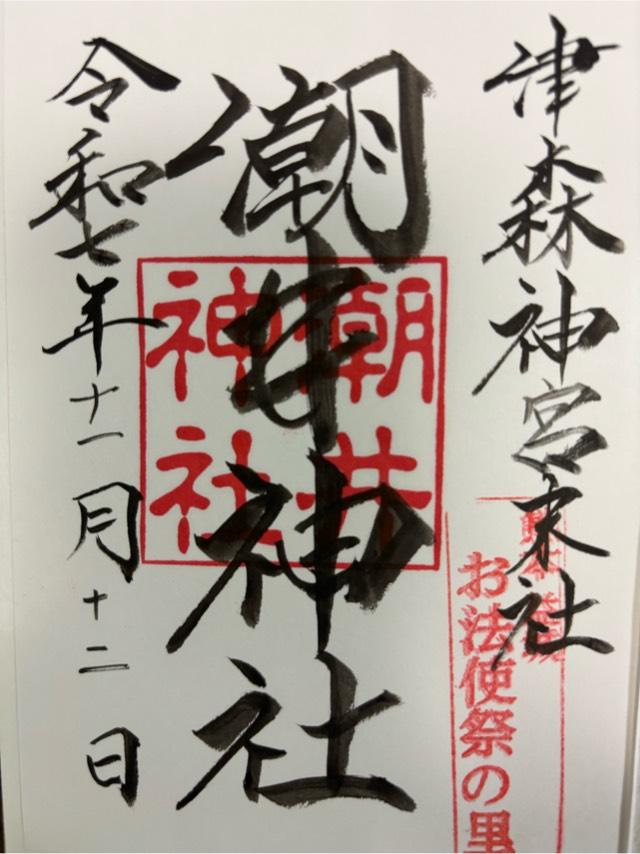 津森神宮末社
お法使祭の里
潮井神社
潮井
神社
令和七年十一月十二日